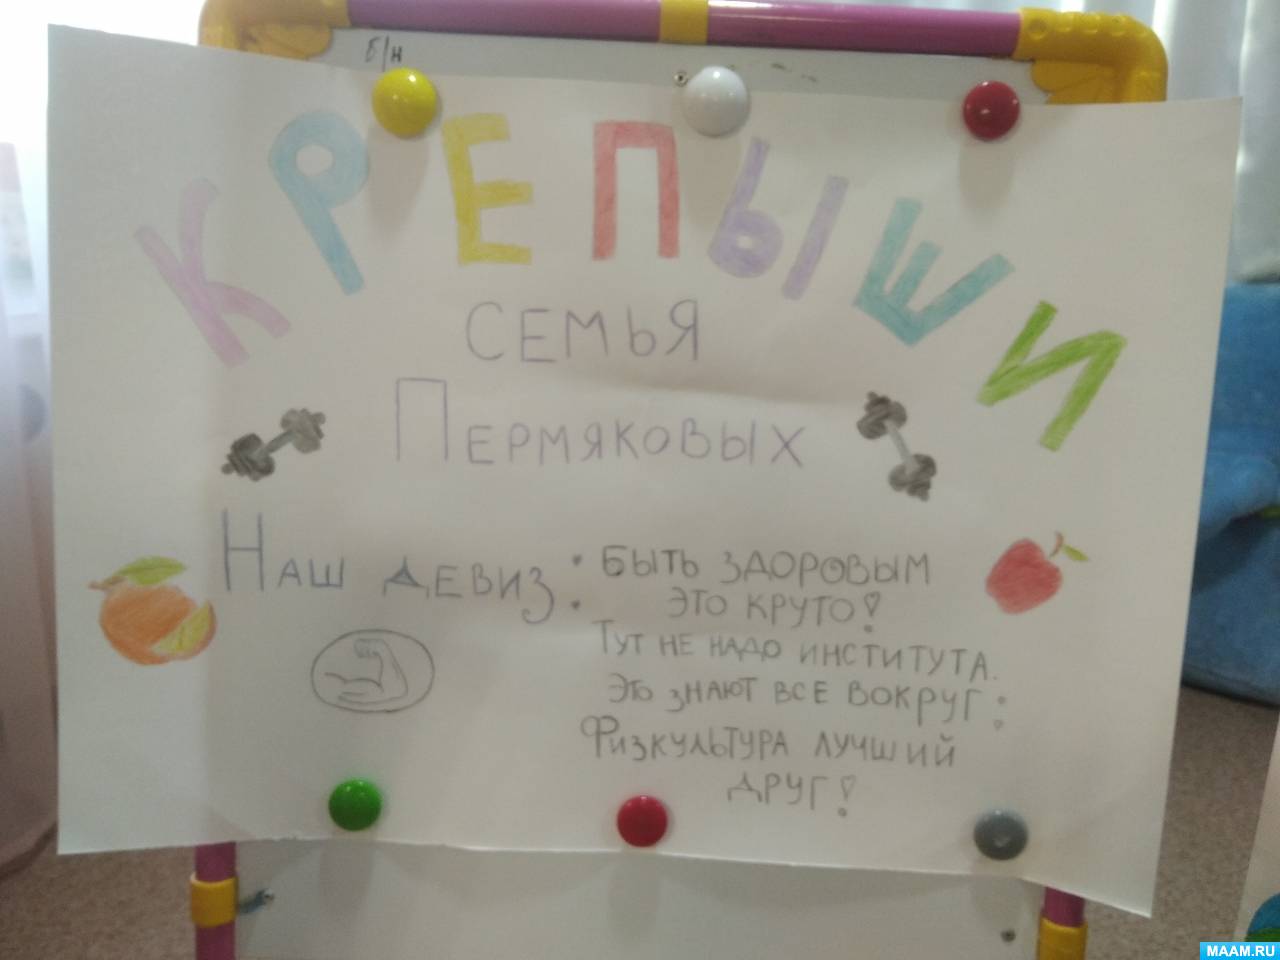 б/н
КРЕПЫШИ
СЕМЬЯ
ПЕРМЯКОВЫХ
НАШ ДЕВИЗ: БЫТЬ ЗДОРОВЫМ
ЭТО КРУТО!
ТУТ НЕ НАДО ИНСТИТУТА.
ЭТО ЗНАЮТ ВСЕ ВОКРУГ:
ФИЗКУЛЬТУРА ЛУЧШИЙ
ДРУГ!
MAAM.RU